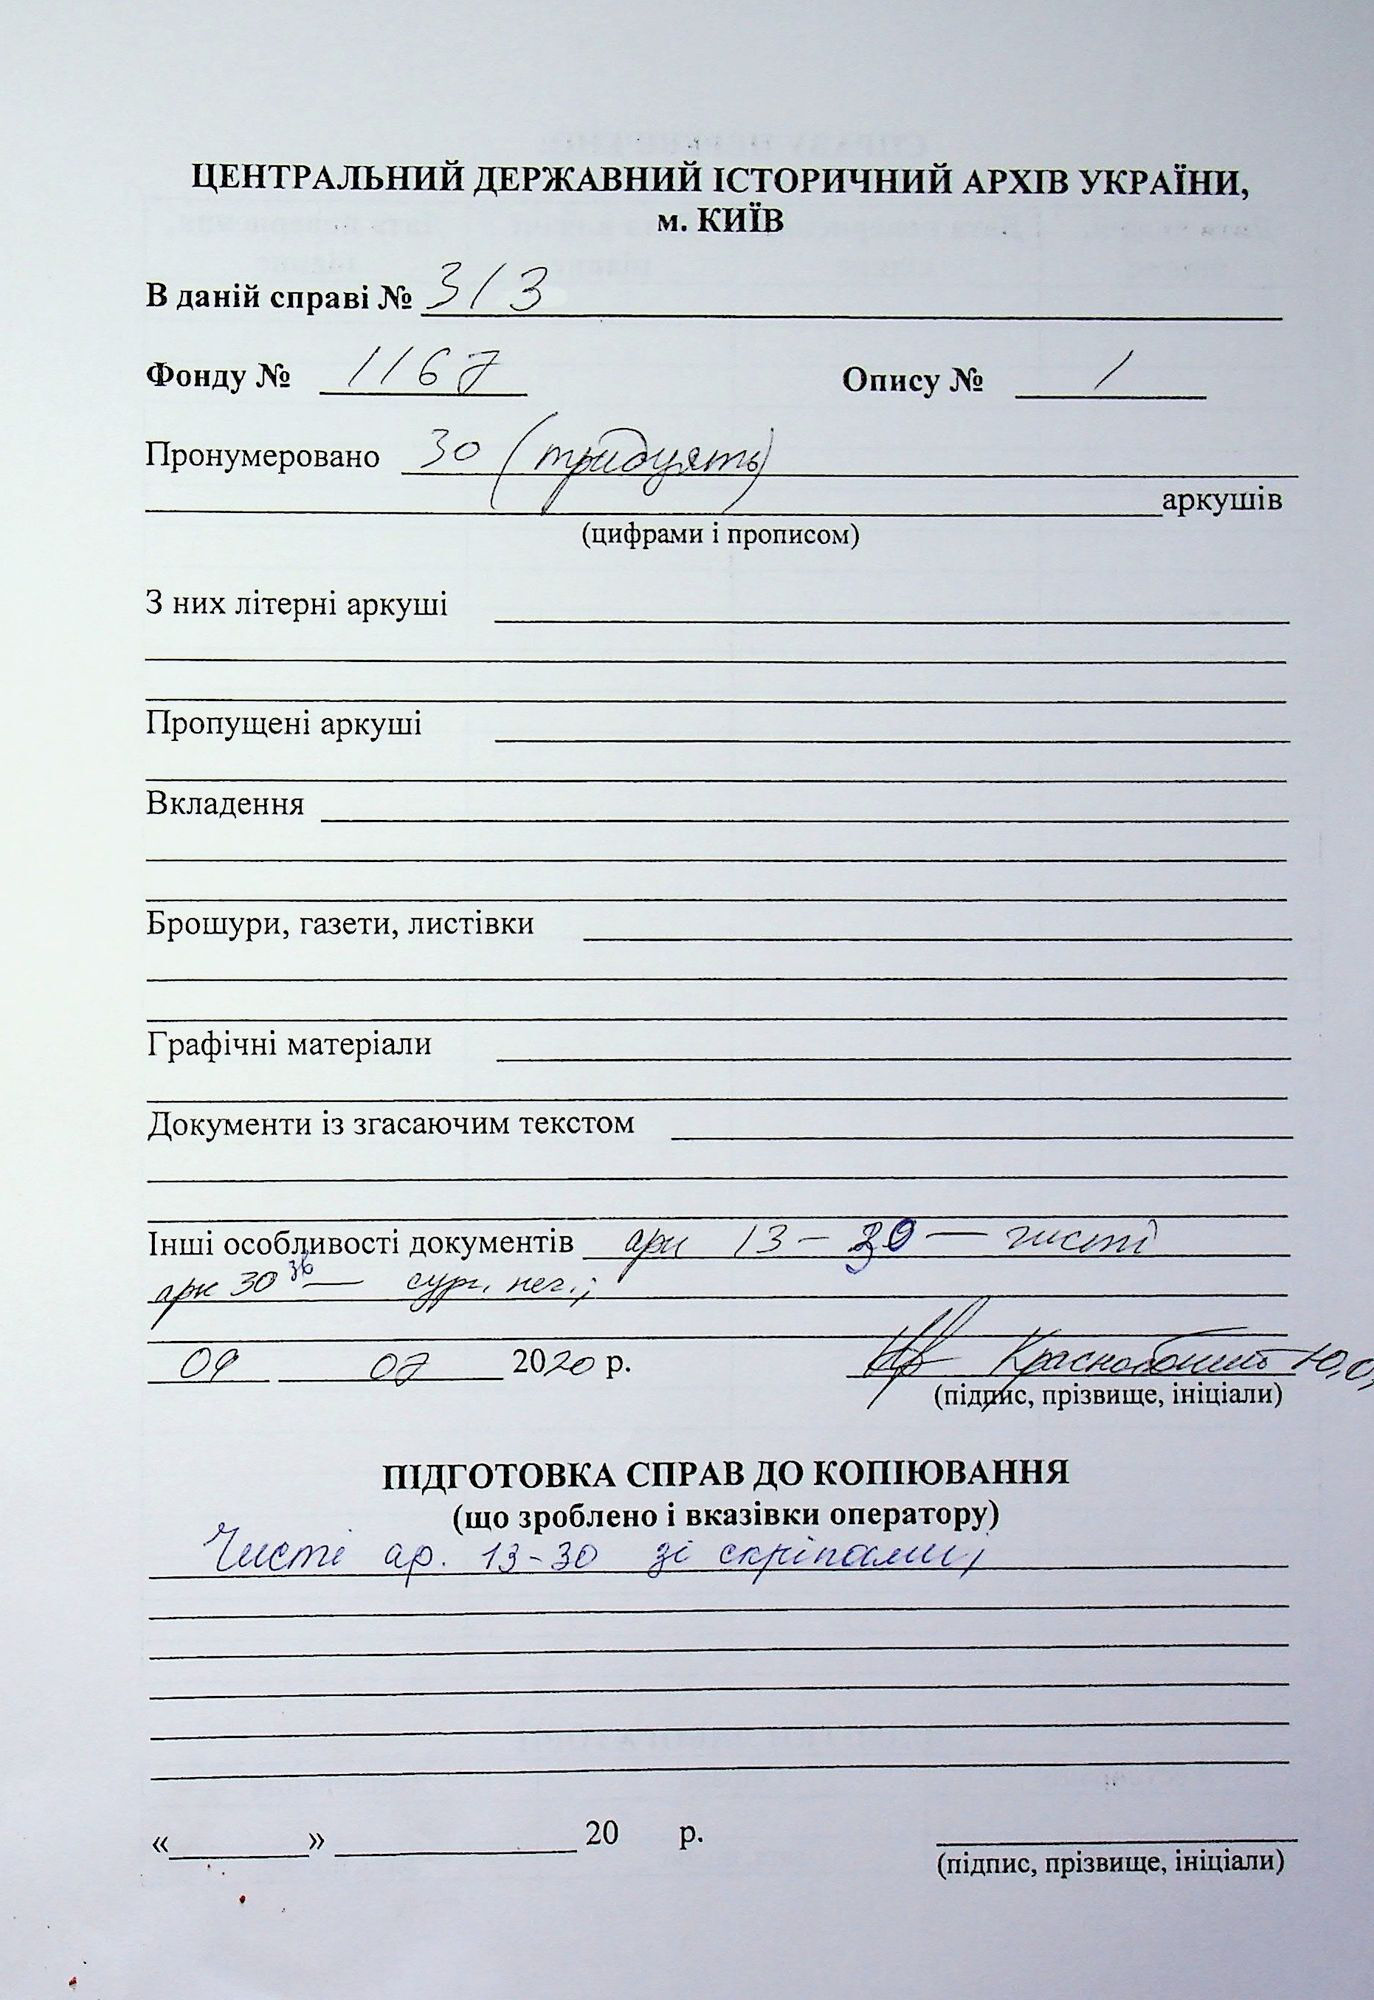 ЦЕНТРАЛЬНИЙ ДЕРЖАВНИЙ ІСТОРИЧНИЙ АРХІВ УКРАЇНИ,
м. КИЇВ
В даній справі № 313
Фонду № 1167 Опису № 1
Пронумеровано 30 (тридцять)
аркушів
(цифрами і прописом)
З них літерні аркуші
Пропущені аркуші
Вкладення
Брошури, газети, листівки
Графічні матеріали
Документи із згасаючим текстом
Інші особливості документів арк 13 – 30 — чисті
арк 30 зв — сург. печ.;
09 07 2020 р.
(підпис, прізвище, ініціали)
ПІДГОТОВКА СПРАВ ДО КОПІЮВАННЯ
(що зроблено і вказівки оператору)
Чисті ар. 13-30 зі скріпами;
« » 20 р.
(підпис, прізвище, ініціали)